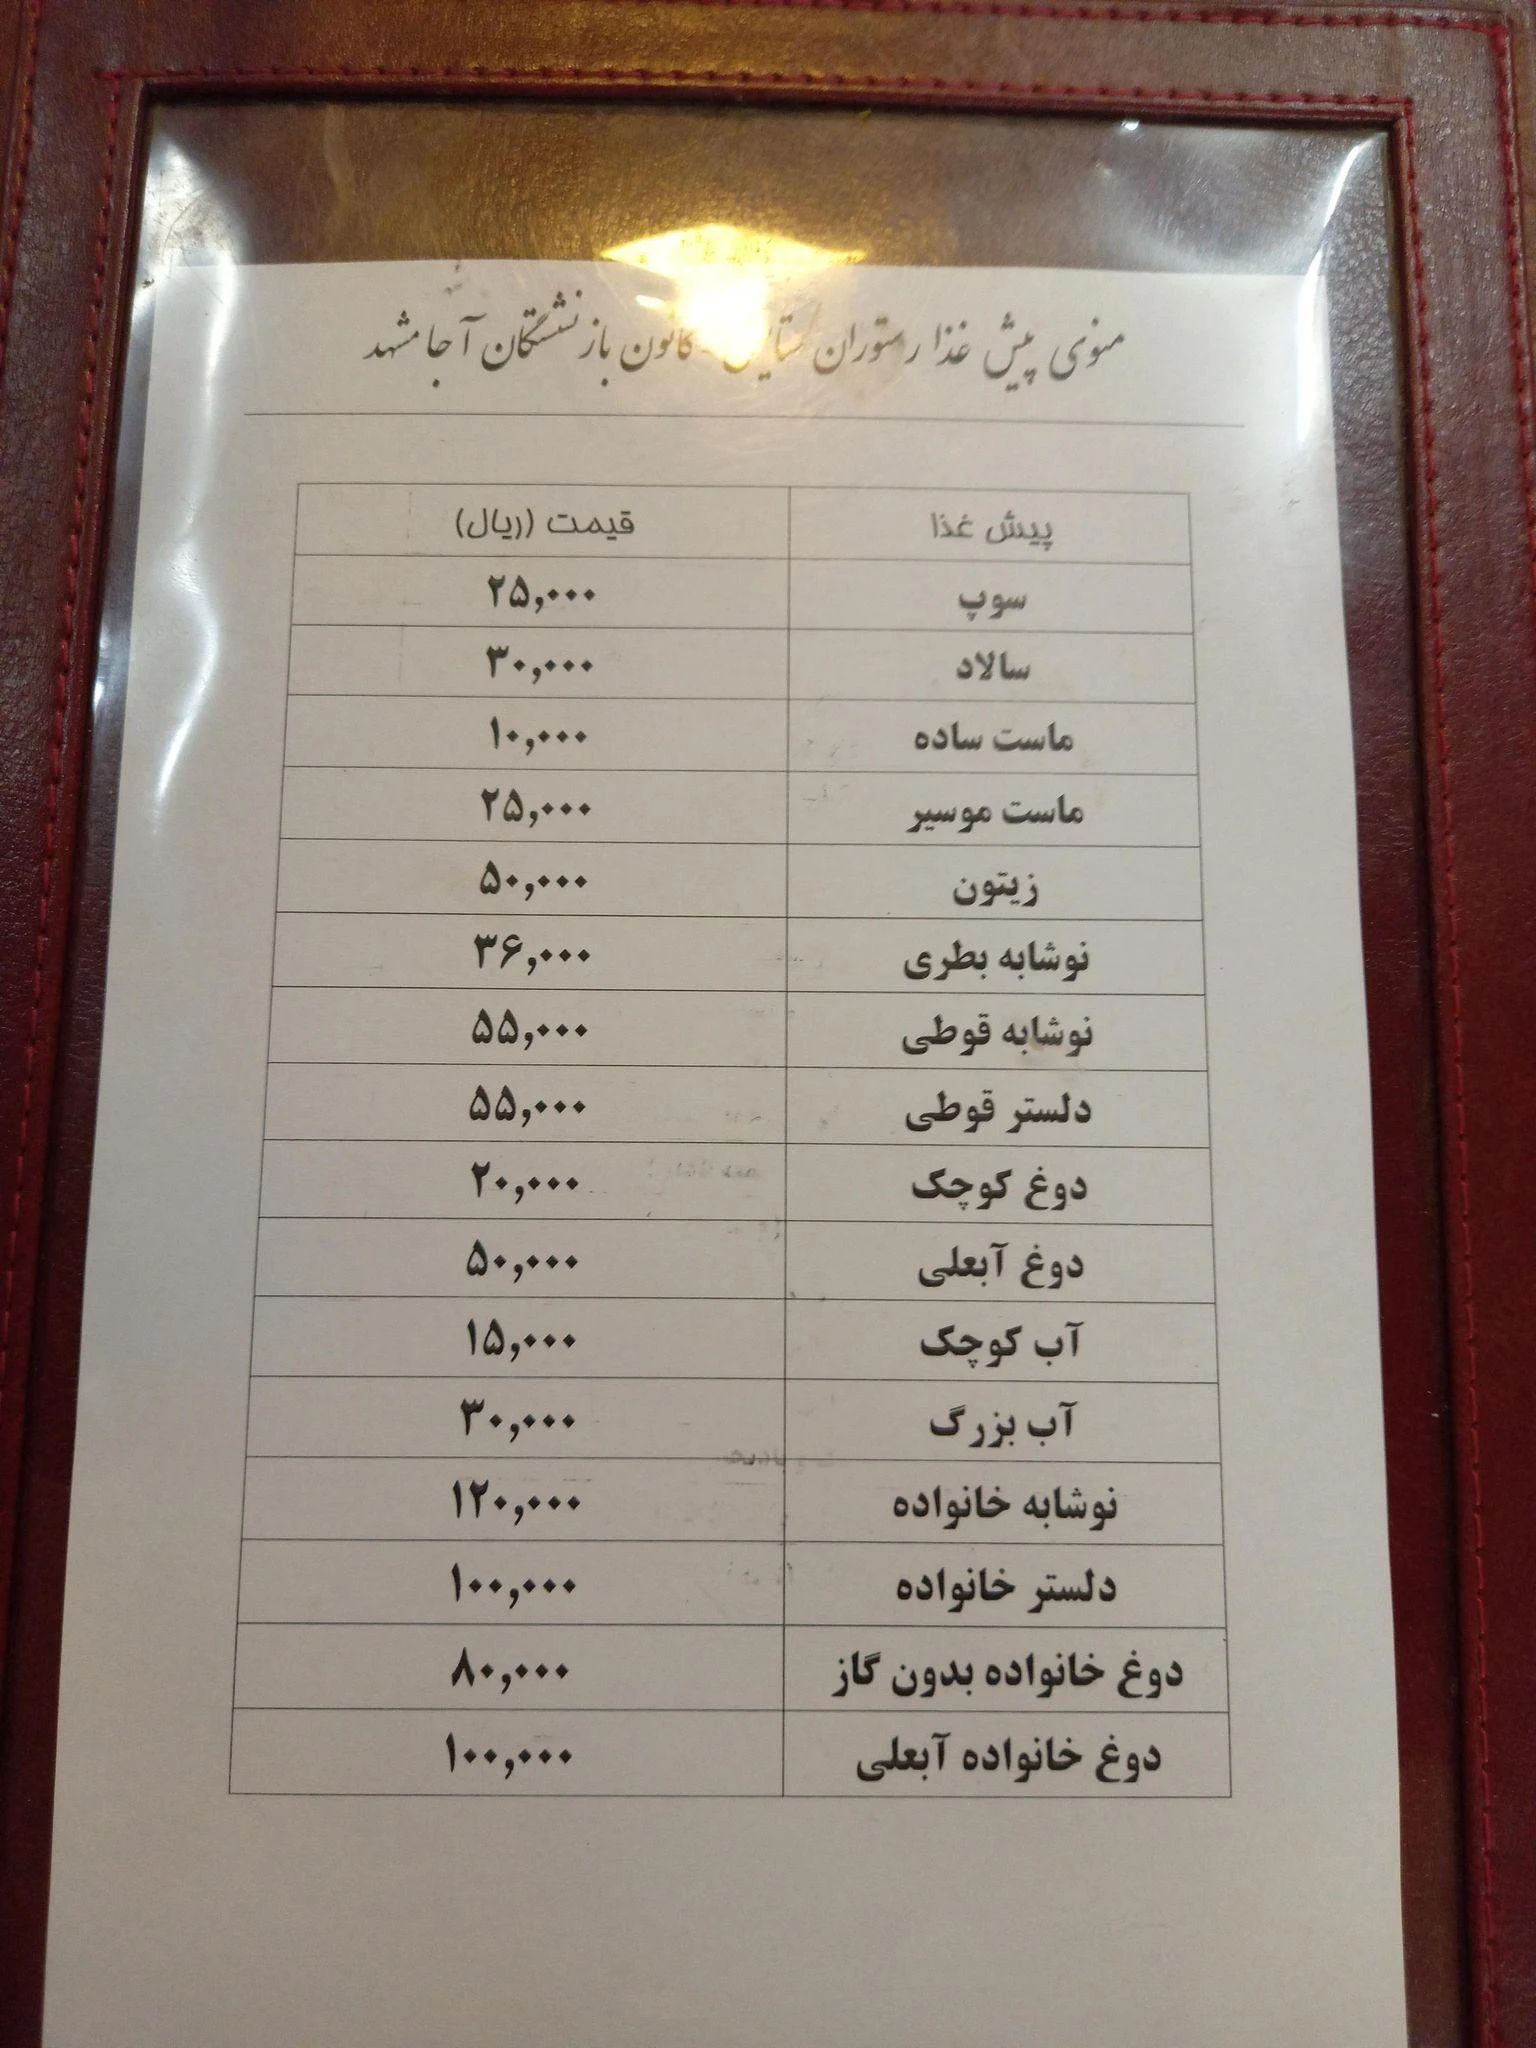 منوی پیش غذا رستوران ستایش کانون بازنشستگان آجا مشهد
پیش غذا قیمت (ریال)
سوپ ۲۵,۰۰۰
سالاد ۳۰,۰۰۰
ماست ساده ۱۰,۰۰۰
ماست موسیر ۲۵,۰۰۰
زیتون ۵۰,۰۰۰
نوشابه بطری ۳۶,۰۰۰
نوشابه قوطی ۵۵,۰۰۰
دلستر قوطی ۵۵,۰۰۰
دوغ کوچک ۲۰,۰۰۰
دوغ آبعلی ۵۰,۰۰۰
آب کوچک ۱۵,۰۰۰
آب بزرگ ۳۰,۰۰۰
نوشابه خانواده ۱۲۰,۰۰۰
دلستر خانواده ۱۰۰,۰۰۰
دوغ خانواده بدون گاز ۸۰,۰۰۰
دوغ خانواده آبعلی ۱۰۰,۰۰۰